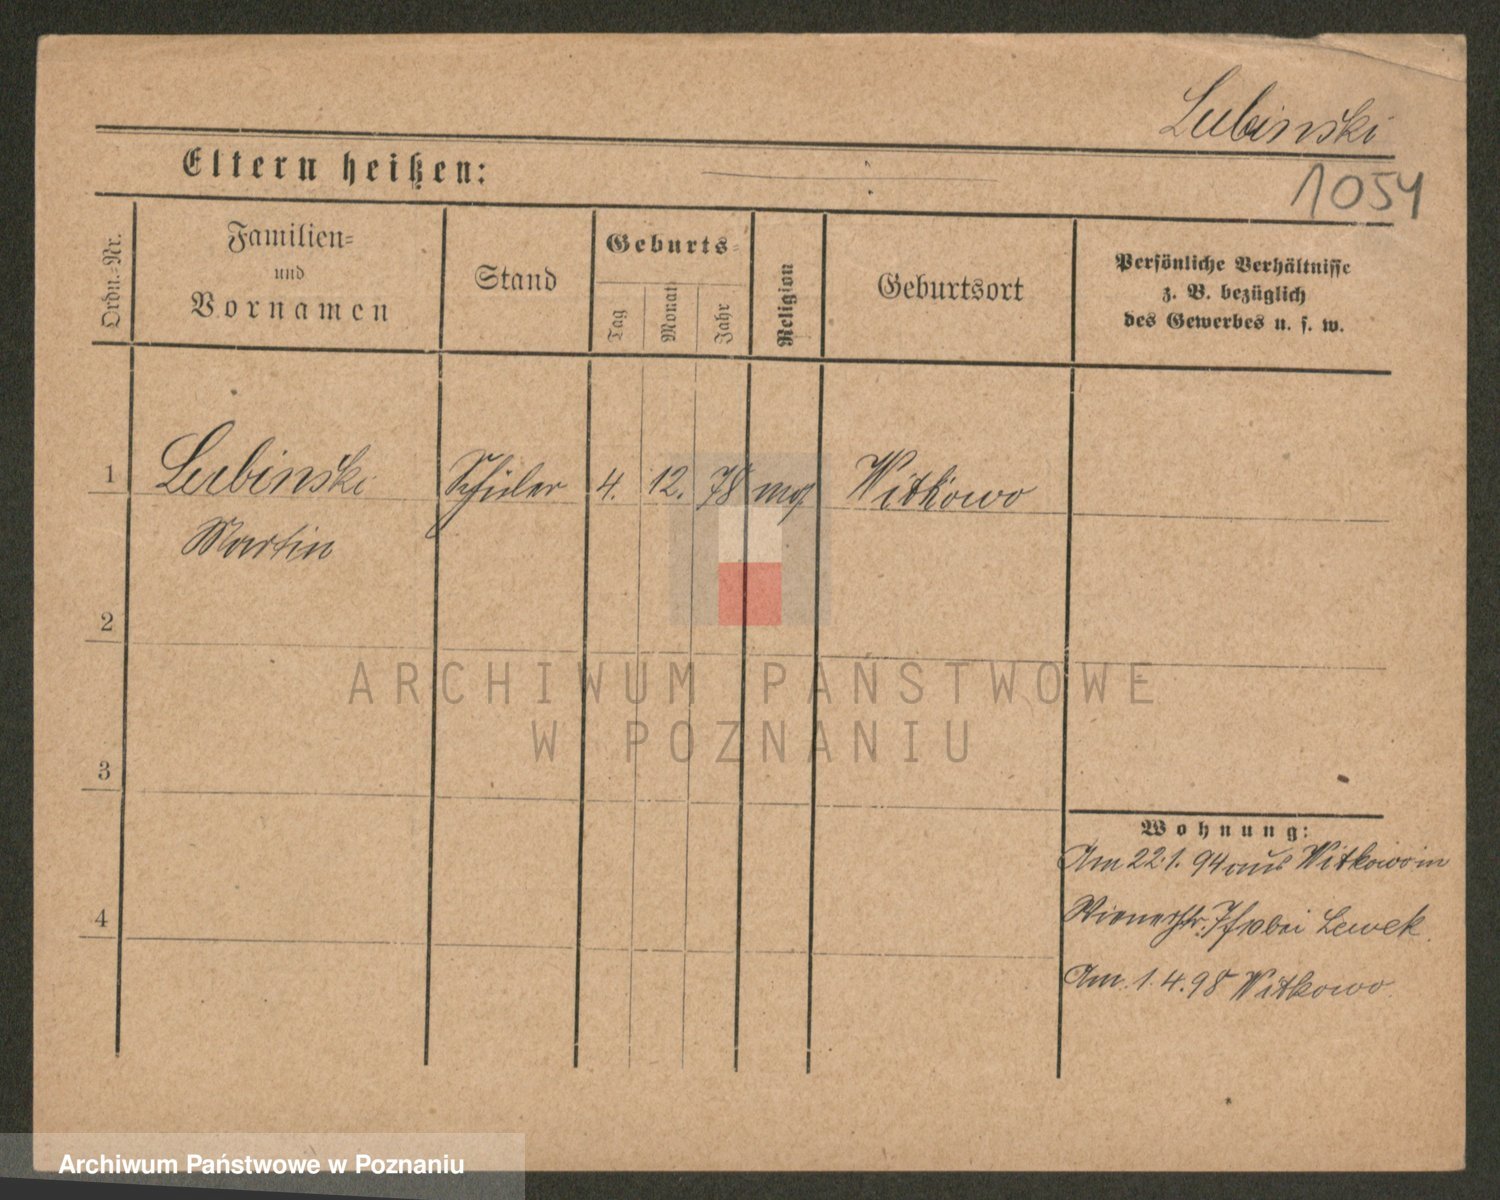 Lubinski
Eltern heißen:
1054
Ordn.=Nr.
Familien=
und
Vornamen
Stand
Geburts=
Tag
Monat
Jahr
Religion
Geburtsort
Persönliche Verhältnisse
z. B. bezüglich
des Gewerbes u. s. w.
1
Lubinski
Schüler
4.
12.
78
mos.
Witkowo
Martin
2
ARCHIWUM PAŃSTWOWE
W POZNANIU
3
Wohnung:
Am 22.1.94 aus Witkowo in
4
Wienerstr. 7 bei Lewek.
Am 1.4.98 Witkowo.
Archiwum Państwowe w Poznaniu